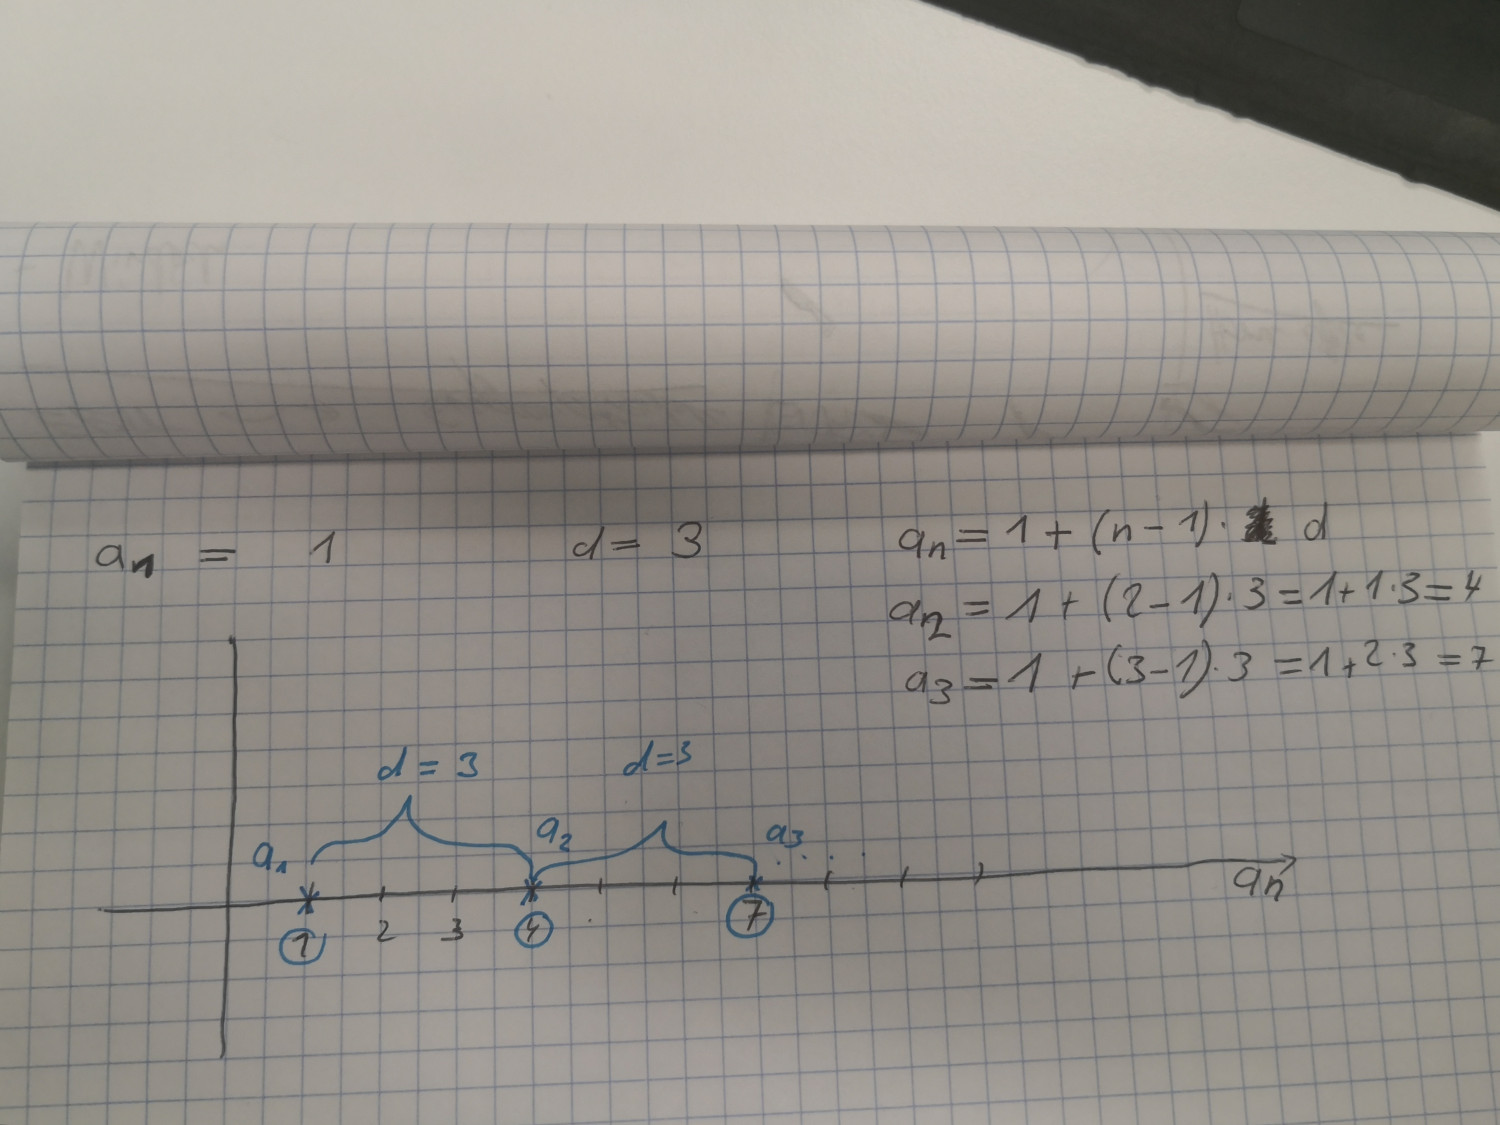 a₁ = 1 d = 3 aₙ = 1 + (n - 1) · d
a₂ = 1 + (2 - 1) · 3 = 1 + 1 · 3 = 4
a₃ = 1 + (3 - 1) · 3 = 1 + 2 · 3 = 7
d = 3 d = 3
a₁ a₂ a₃
aₙ
1 2 3 4 7